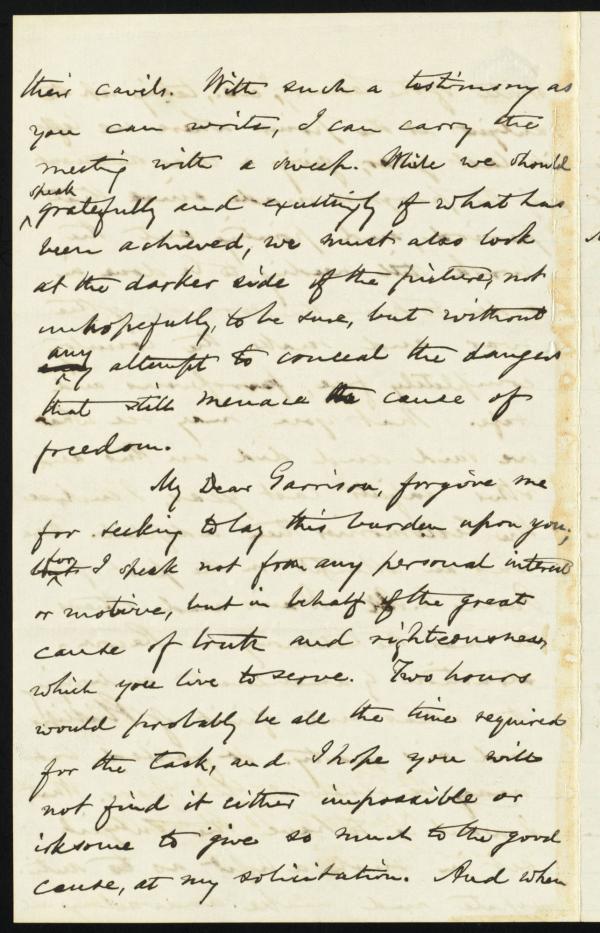 their cavils. With such a testimony as
you can write, I can carry the
meeting with a sweep. While we should
speak
^gratefully and exultingly of what has
been achieved, we must also look
at the darker side of the picture, not
unhopefully, to be sure, but without
any
attempt to conceal the dangers
that still menace the cause of
freedom.
My Dear Garrison, forgive me
for seeking to lay this burden upon you;
for
I speak not from any personal interest
or motive, but in behalf of the great
cause of truth and righteousness,
which you live to serve. Two hours
would probably be all the time required
for the task, and I hope you will
not find it either impossible or
irksome to give so much to the good
cause, at my solicitation. And when